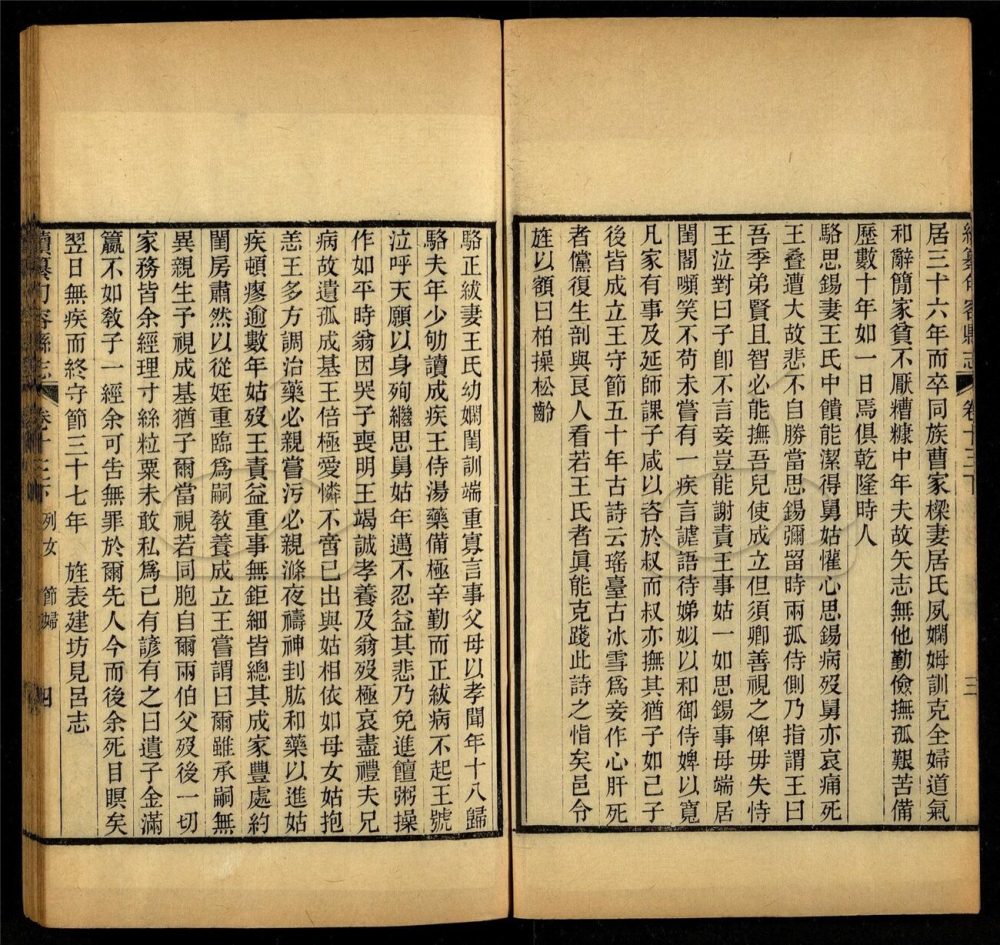 續纂句容縣志 卷十三下 三
居三十六年而卒同族曹家樑妻居氏夙嫻姆訓克全婦道氣
和辭簡家貧不厭糟糠中年夫故矢志無他勤儉撫孤艱苦備
歷數十年如一日焉俱乾隆時人
駱思錫妻王氏中饋能潔得舅姑懽心思錫病歿舅亦哀痛死
王叠遭大故悲不自勝當思錫彌留時兩孤侍側乃指謂王曰
吾季弟賢且智必能撫吾兒使成立但須卿善視之俾毋失恃
王泣對曰子卽不言妾豈能謝責王事姑一如思錫事母端居
閨閤嚬笑不苟未嘗有一疾言謔語待娣姒以和御侍婢以寬
凡家有事及延師課子咸以咨於叔而叔亦撫其猶子如己子
後皆成立王守節五十年古詩云瑤臺古冰雪爲妾作心肝死
者儻復生剖與良人看若王氏者眞能克踐此詩之恉矣邑令
旌以額曰柏操松齡
駱正紱妻王氏幼嫻閨訓端重寡言事父母以孝聞年十八歸
駱夫年少劬讀成疾王侍湯藥備極辛勤而正紱病不起王號
泣呼天願以身殉繼思舅姑年邁不忍益其悲乃免進饘粥操
作如平時翁因哭子喪明王竭誠孝養及翁歿極哀盡禮夫兄
病故遺孤成基王倍極愛憐不啻己出與姑相依如母女姑抱
恙王多方調治藥必親嘗污必親滌夜禱神刲肱和藥以進姑
疾頓瘳逾數年姑歿王責益重事無鉅細皆總其成家豐處約
閨房肅然以從姪重臨爲嗣敎養成立王嘗謂曰爾雖承嗣無
異親生子視成基猶子爾當視若同胞自爾兩伯父歿後一切
家務皆余經理寸絲粒粟未敢私爲己有諺有之曰遺子金滿
籯不如敎子一經余可告無罪於爾先人今而後余死目瞑矣
翌日無疾而終守節三十七年 旌表建坊見呂志
續纂句容縣志 卷十三下 列女 節婦 四